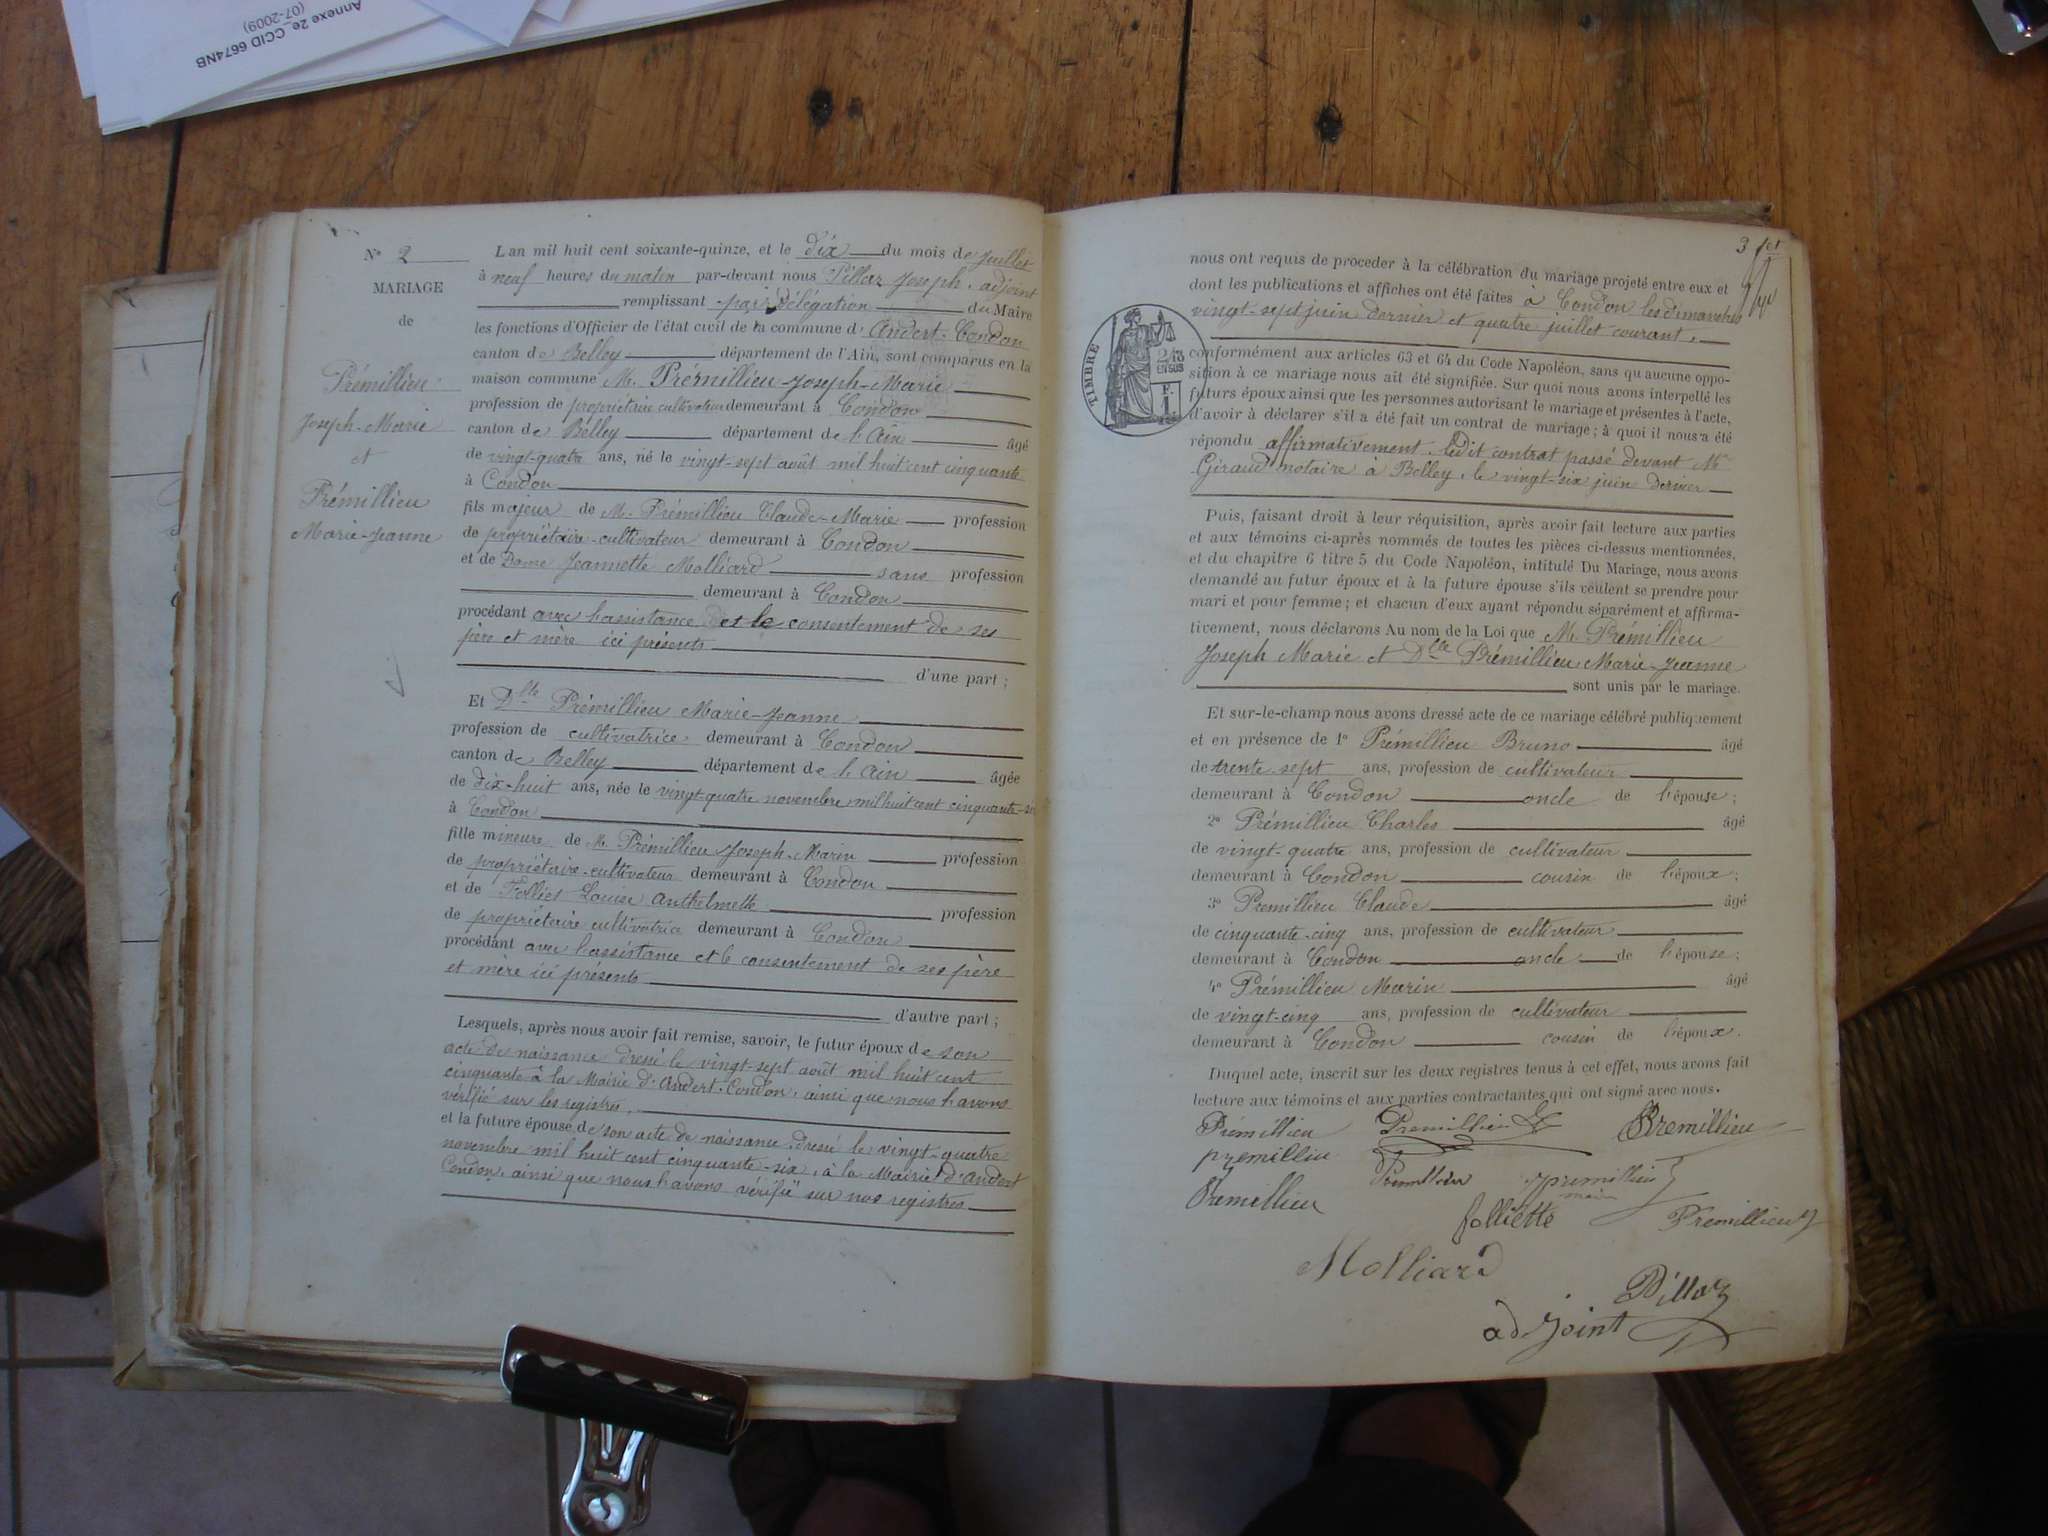 Annexe 2e CCID 6674NB
(07-2009)
N° 2
MARIAGE
de
Prémillieu
Joseph-Marie
et
Prémillieu
Marie-Jeanne
L'an mil huit cent soixante-quinze, et le dix du mois de juillet
à neuf heures du matin par-devant nous Pillaz Joseph, adjoint
remplissant par délégation du Maire
les fonctions d'Officier de l'état civil de la commune d'Andert-Condon
canton de Belley département de l'Ain, sont comparus en la
maison commune M. Prémillieu Joseph-Marie
profession de propriétaire cultivateur demeurant à Condon
canton de Belley département de l'Ain âgé
de vingt-quatre ans, né le vingt-sept août mil huit cent cinquante
à Condon
fils majeur de M. Prémillieu Claude-Marie profession
de propriétaire-cultivateur demeurant à Condon
et de Dame Jeannette Molliard sans profession
demeurant à Condon
procédant avec l'assistance et le consentement de ses
père et mère ici présents
d'une part;
Et Dlle Prémillieu Marie-Jeanne
profession de cultivatrice demeurant à Condon
canton de Belley département de l'Ain âgée
de dix-huit ans, née le vingt-quatre novembre mil huit cent cinquante-six
à Condon
fille mineure de M. Prémillieu Joseph-Marin profession
de propriétaire-cultivateur demeurant à Condon
et de Folliet Louise Anthelmette profession
de propriétaire cultivatrice demeurant à Condon
procédant avec l'assistance et le consentement de ses père
et mère ici présents
d'autre part;
Lesquels, après nous avoir fait remise, savoir, le futur époux de son
acte de naissance dressé le vingt-sept août mil huit cent
cinquante à la Mairie d'Andert-Condon, ainsi que nous l'avons
vérifié sur les registres.
et la future épouse de son acte de naissance dressé le vingt-quatre
novembre mil huit cent cinquante-six, à la Mairie d'Andert
Condon, ainsi que nous l'avons vérifié sur nos registres
3
nous ont requis de proceder à la célébration du mariage projeté entre eux et
dont les publications et affiches ont été faites à Condon les dimanches
vingt-sept juin dernier et quatre juillet courant.
TIMBRE
2/10
EN SUS
F.
1
conformément aux articles 63 et 64 du Code Napoléon, sans qu'aucune oppo-
sition à ce mariage nous ait été signifiée. Sur quoi nous avons interpellé les
futurs époux ainsi que les personnes autorisant le mariage et présentes à l'acte,
d'avoir à déclarer s'il a été fait un contrat de mariage; à quoi il nous a été
répondu affirmativement. Ledit contrat passé devant Me
Giraud notaire à Belley, le vingt-six juin dernier
Puis, faisant droit à leur réquisition, après avoir fait lecture aux parties
et aux témoins ci-après nommés de toutes les pièces ci-dessus mentionnées,
et du chapitre 6 titre 5 du Code Napoléon, intitulé Du Mariage, nous avons
demandé au futur époux et à la future épouse s'ils veulent se prendre pour
mari et pour femme; et chacun d'eux ayant répondu séparément et affirma-
tivement, nous déclarons Au nom de la Loi que M. Prémillieu
Joseph Marie et Dlle Prémillieu Marie-Jeanne
sont unis par le mariage.
Et sur-le-champ nous avons dressé acte de ce mariage célébré publiquement
et en présence de 1° Prémillieu Bruno âgé
de trente sept ans, profession de cultivateur
demeurant à Condon oncle de l'épouse;
2° Prémillieu Charles âgé
de vingt-quatre ans, profession de cultivateur
demeurant à Condon cousin de l'époux;
3° Premillieu Claude âgé
de cinquante-cinq ans, profession de cultivateur
demeurant à Condon oncle de l'épouse;
4° Prémillieu Marin âgé
de vingt-cinq ans, profession de cultivateur
demeurant à Condon cousin de l'époux.
Duquel acte, inscrit sur les deux registres tenus à cet effet, nous avons fait
lecture aux témoins et aux parties contractantes qui ont signé avec nous.
Prémillieu Premillieu Premillieu
premillieu Premillieu premillieu
Premillieu folliette Premillieu
Molliard
Pillaz
adjoint